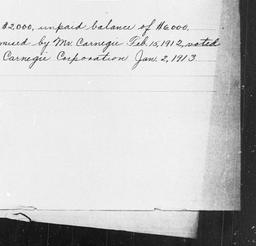 $2,000, unpaid balance of $6,000,
mised by Mr. Carnegie Feb. 15, 1912, voted
Carnegie Corporation Jan. 2, 1913.